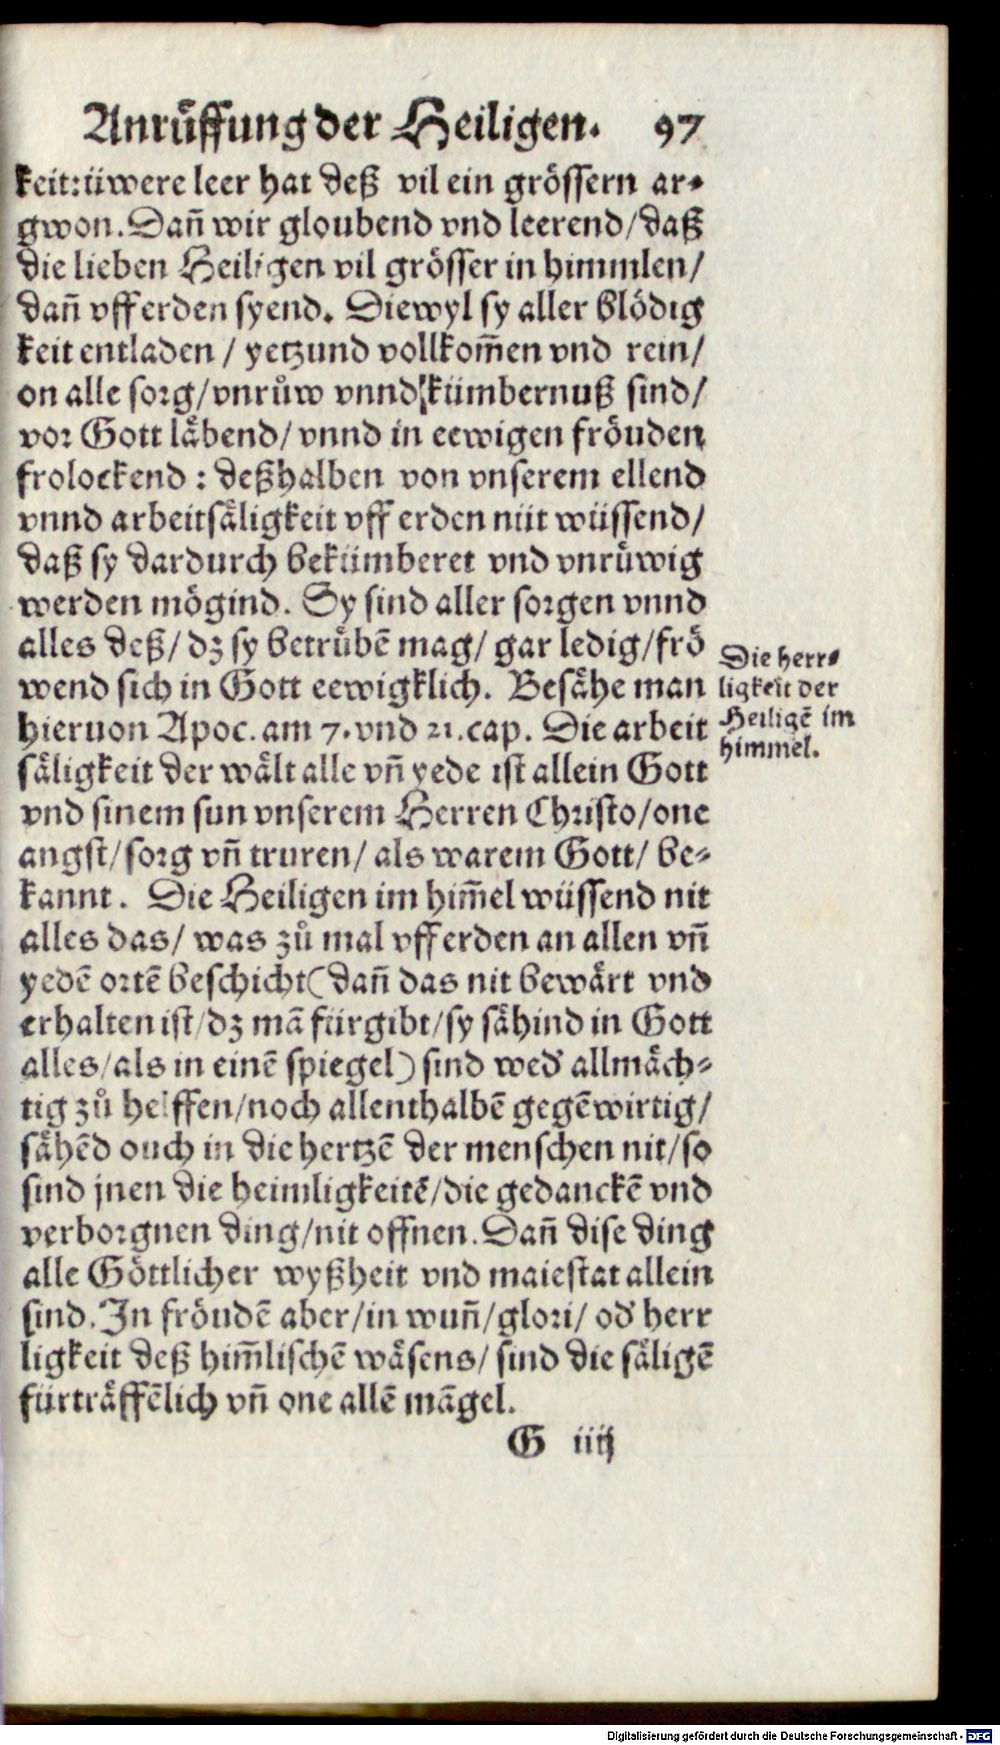 Anrüffung der Heiligen. 97
keit: üwere leer hat deß vil ein grössern ar-
gwon. Dañ wir gloubend vnd leerend/ daß
die lieben Heiligen vil grösser in himmlen/
dañ vff erden syend. Diewyl sy aller blödig
keit entladen / yetzund vollkom̃en vnd rein/
on alle sorg/ vnrůw vnnd kümbernuß sind/
vor Gott läbend/ vnnd in eewigen fröuden
frolockend : deßhalben von vnserem ellend
vnnd arbeitsäligkeit vff erden nüt wüssend/
daß sy dardurch bekümberet vnd vnrüwig
werden mögind. Sy sind aller sorgen vnnd
alles deß/ dz sy betrübē mag/ gar ledig/ frö
wend sich in Gott eewigklich. Besähe man
hieruon Apoc. am 7. vnd 21. cap. Die arbeit
säligkeit der wält alle vñ yede ist allein Gott
vnd sinem sun vnserem Herren Christo/ one
angst/ sorg vñ truren/ als warem Gott/ be-
kannt. Die Heiligen im him̃el wüssend nit
alles das/ was zů mal vff erden an allen vñ
yedē ortē beschicht (dañ das nit bewärt vnd
erhalten ist/ dz mā fürgibt/ sy sähind in Gott
alles/ als in einē spiegel) sind wed' allmäch-
tig zů helffen/ noch allenthalbē gegēwirtig/
sähēd ouch in die hertzē der menschen nit/ so
sind jnen die heimligkeitē/ die gedanckē vnd
verborgnen ding/ nit offnen. Dañ dise ding
alle Göttlicher wyßheit vnd maiestat allein
sind. In fröudē aber/ in wuñ/ glori/ od' herr
ligkeit deß him̃lischē wäsens/ sind die säligē
fürträffēlich vñ one allē māgel.
G iiij
Die herr-
ligkeit der
Heiligē im
himmel.
Digitalisierung gefördert durch die Deutsche Forschungsgemeinschaft - DFG